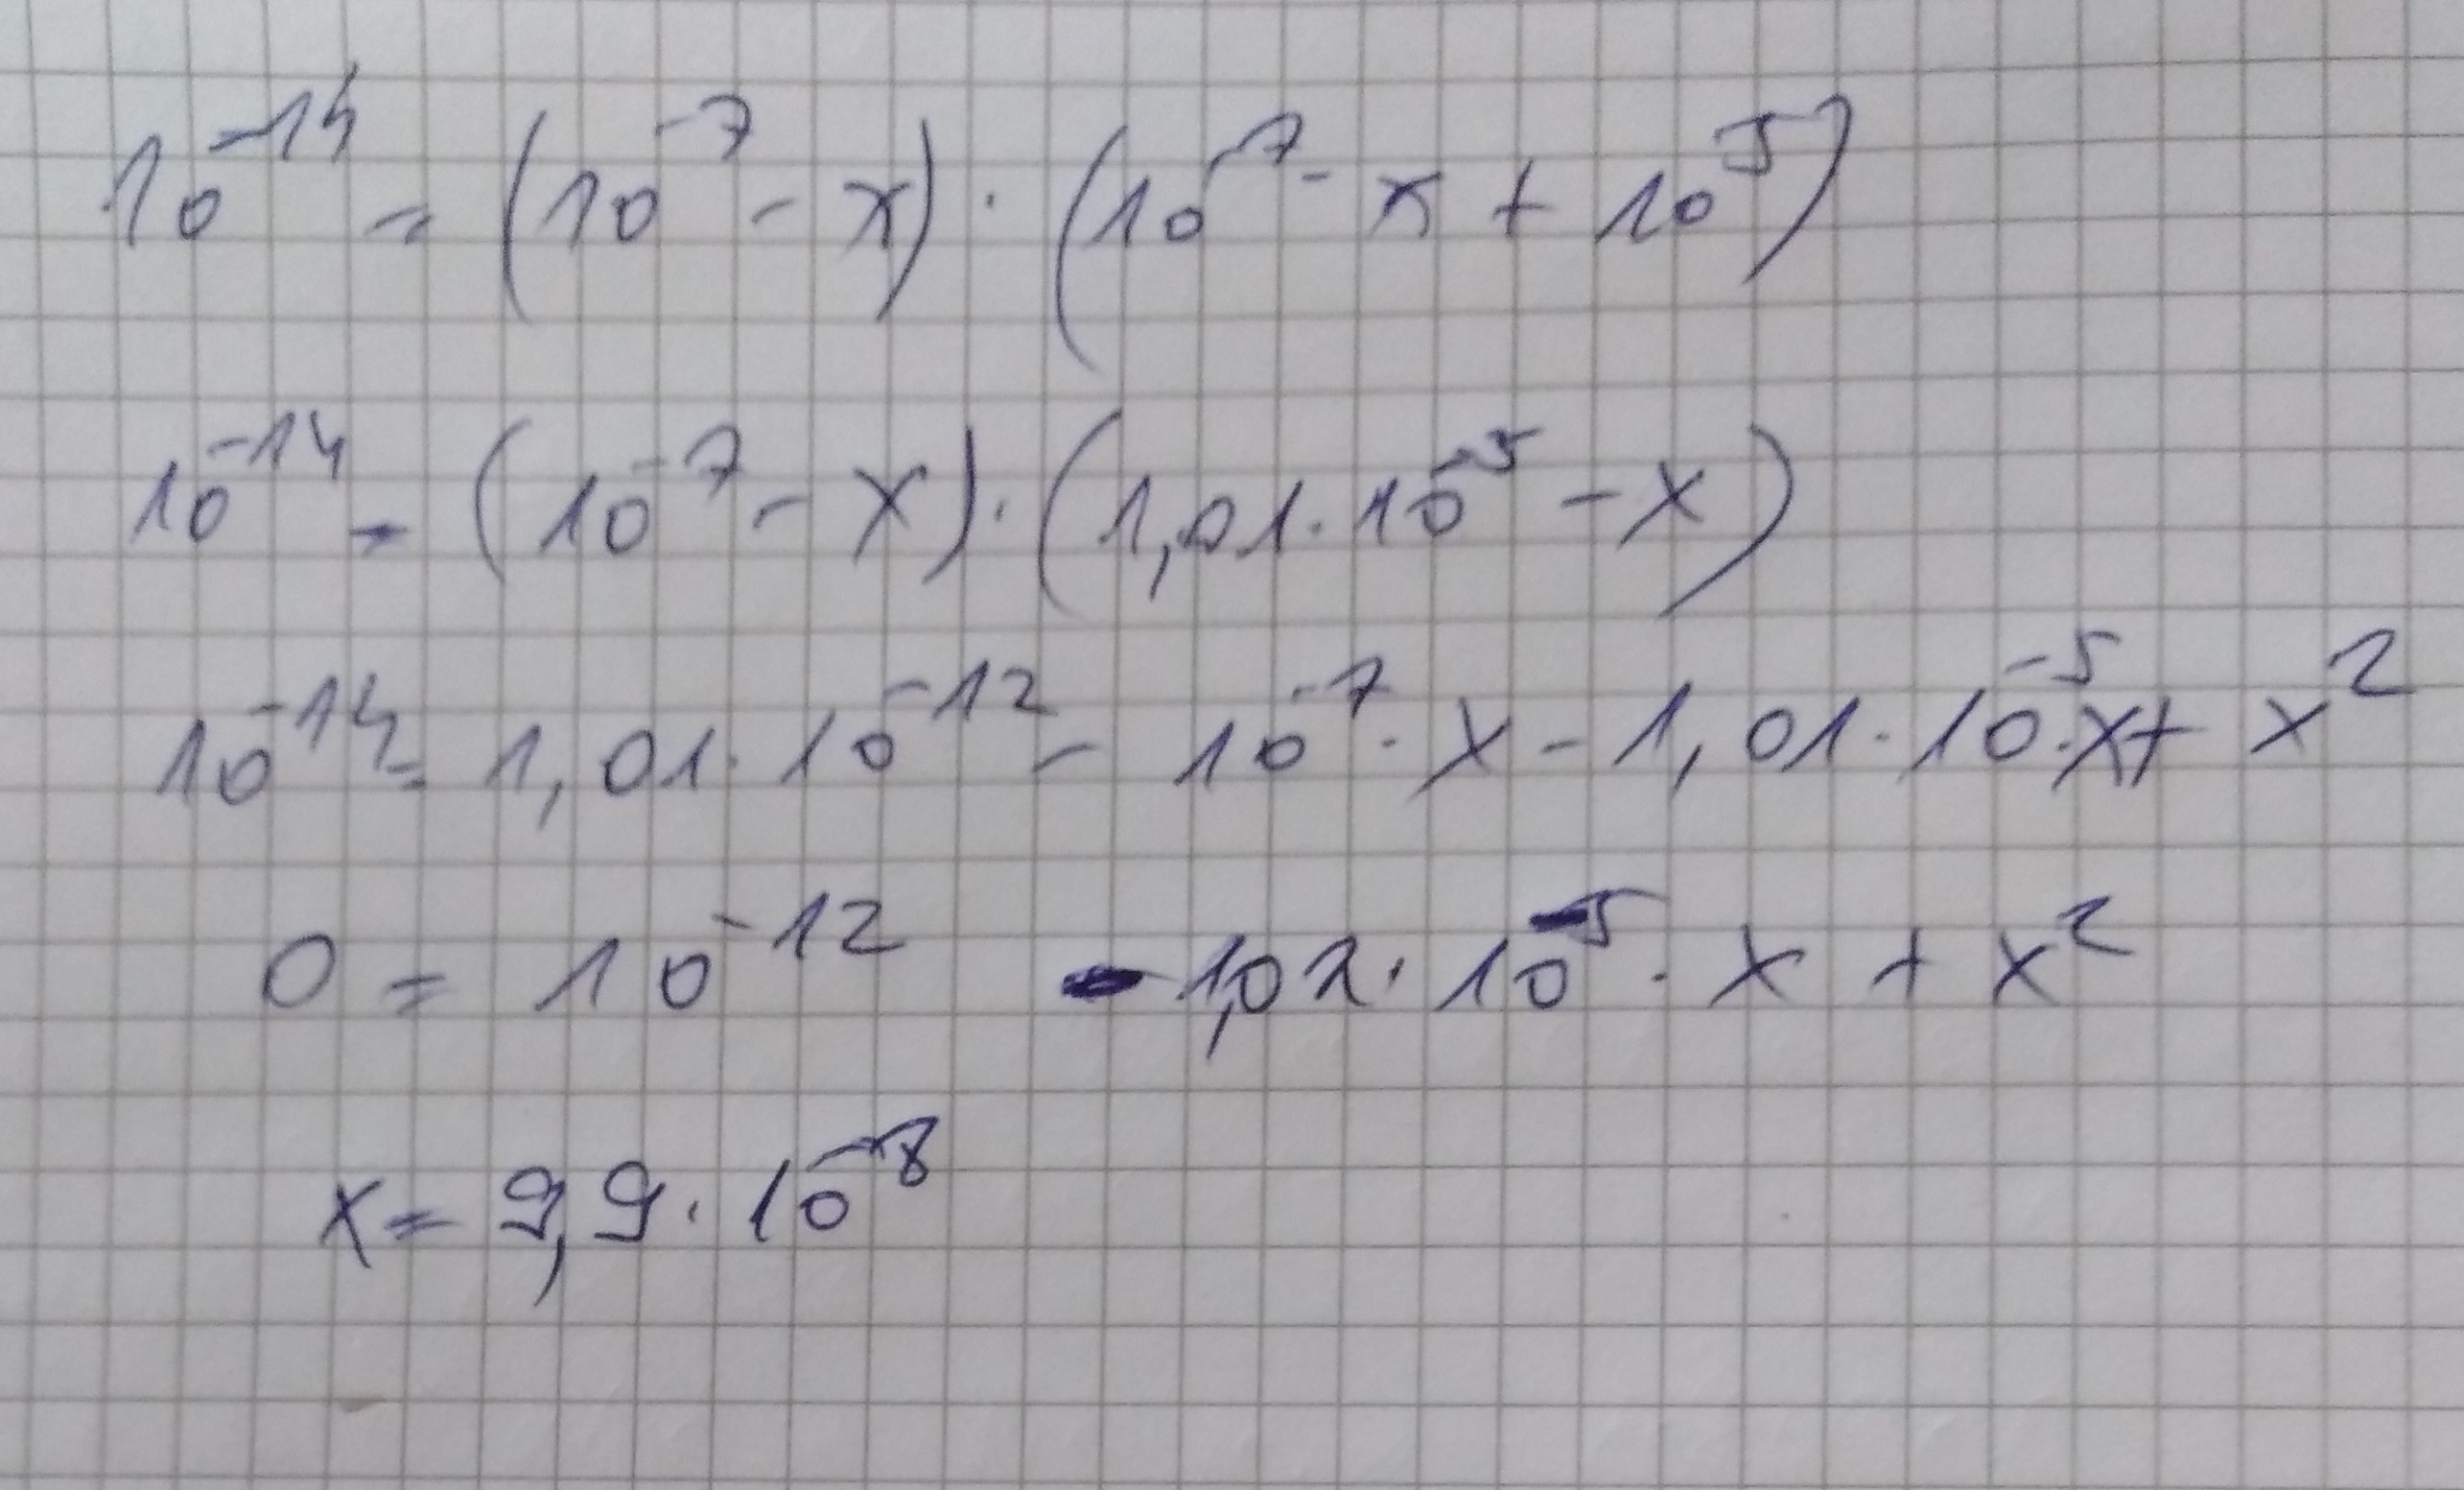 10⁻¹⁴ = (10⁻⁷ - x) · (10⁻⁷ - x + 10⁵)
10⁻¹⁴ = (10⁻⁷ - x) · (1,01 · 10⁻⁵ - x)
10⁻¹⁴ = 1,01 · 10⁻¹² - 10⁻⁷ · x - 1,01 · 10⁻⁵ · x + x²
0 = 10⁻¹² - 1,02 · 10⁻⁵ · x + x²
x = 9,9 · 10⁻⁸